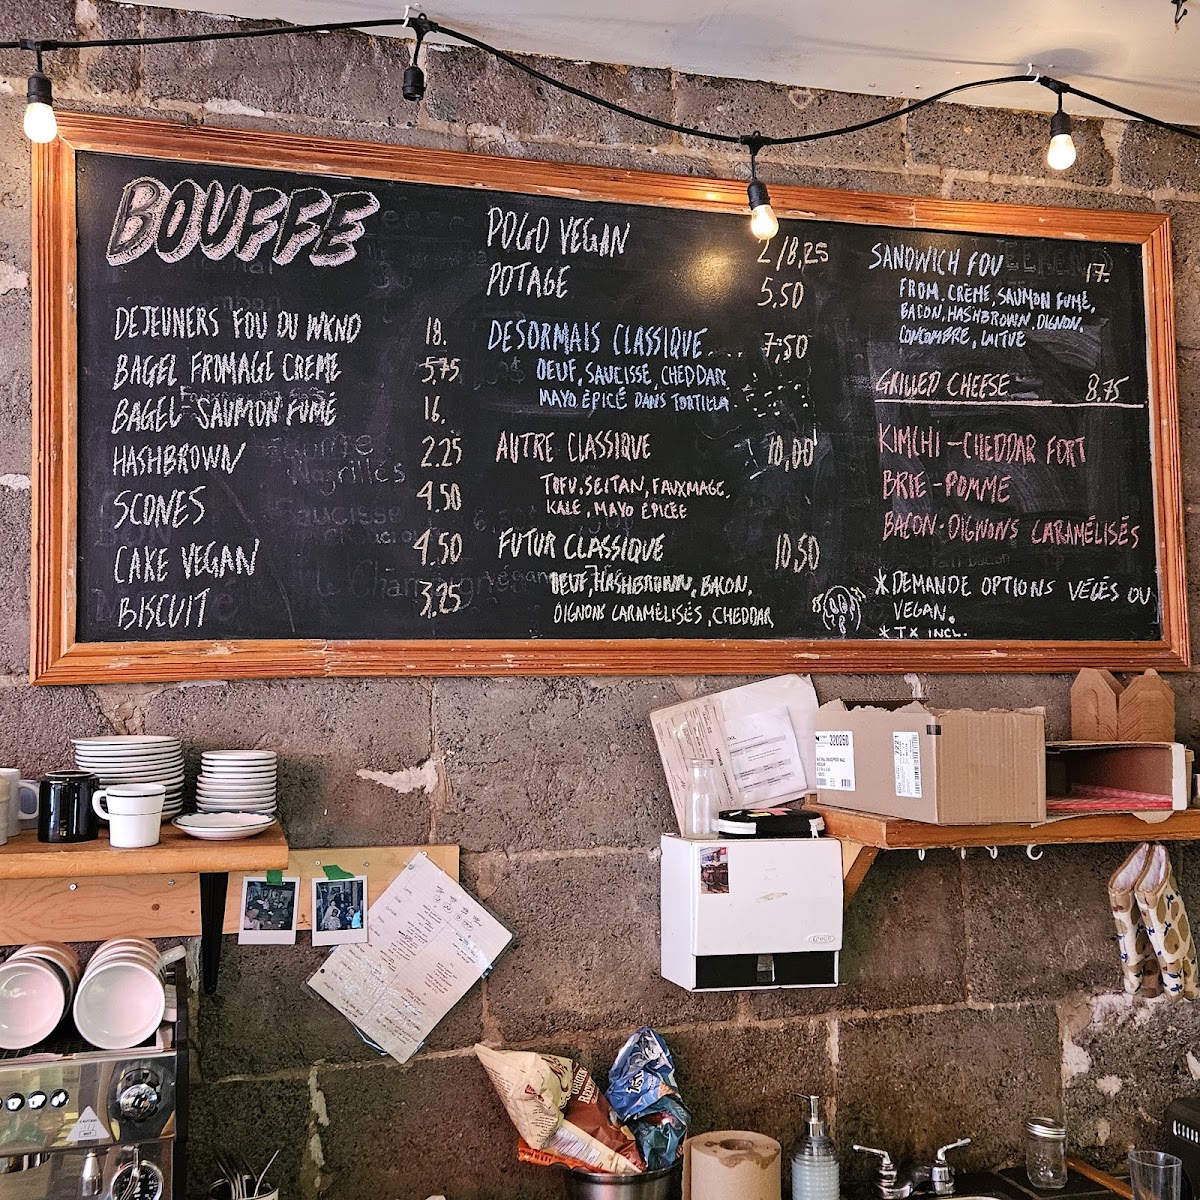 BOUFFE
DEJEUNERS FOU DU WKND 18.
BAGEL FROMAGE CREME 5,75
BAGEL-SAUMON FUMÉ 16.
HASHBROWN 2.25
SCONES 4.50
CAKE VEGAN 4.50
BISCUIT 3,25
POGO VEGAN 2/8,25
POTAGE 5,50
DESORMAIS CLASSIQUE... 7,50
OEUF, SAUCISSE, CHEDDAR
MAYO ÉPICÉ DANS TORTILLA
AUTRE CLASSIQUE 10,00
TOFU, SEITAN, FAUXMAGE,
KALE, MAYO ÉPICÉE
FUTUR CLASSIQUE 10,50
OEUF, HASHBROWN, BACON,
OIGNONS CARAMÉLISÉS, CHEDDAR
SANDWICH FOU 17.
FROM. CRÈME, SAUMON FUMÉ,
BACON, HASHBROWN, OIGNON,
CONCOMBRE, LAITUE
GRILLED CHEESE 8,75
KIMCHI - CHEDDAR FORT
BRIE - POMME
BACON - OIGNONS CARAMÉLISÉS
* DEMANDE OPTIONS VÉGÉS OU
VEGAN.
* TX INCL.
320250
CAUTION
HOT